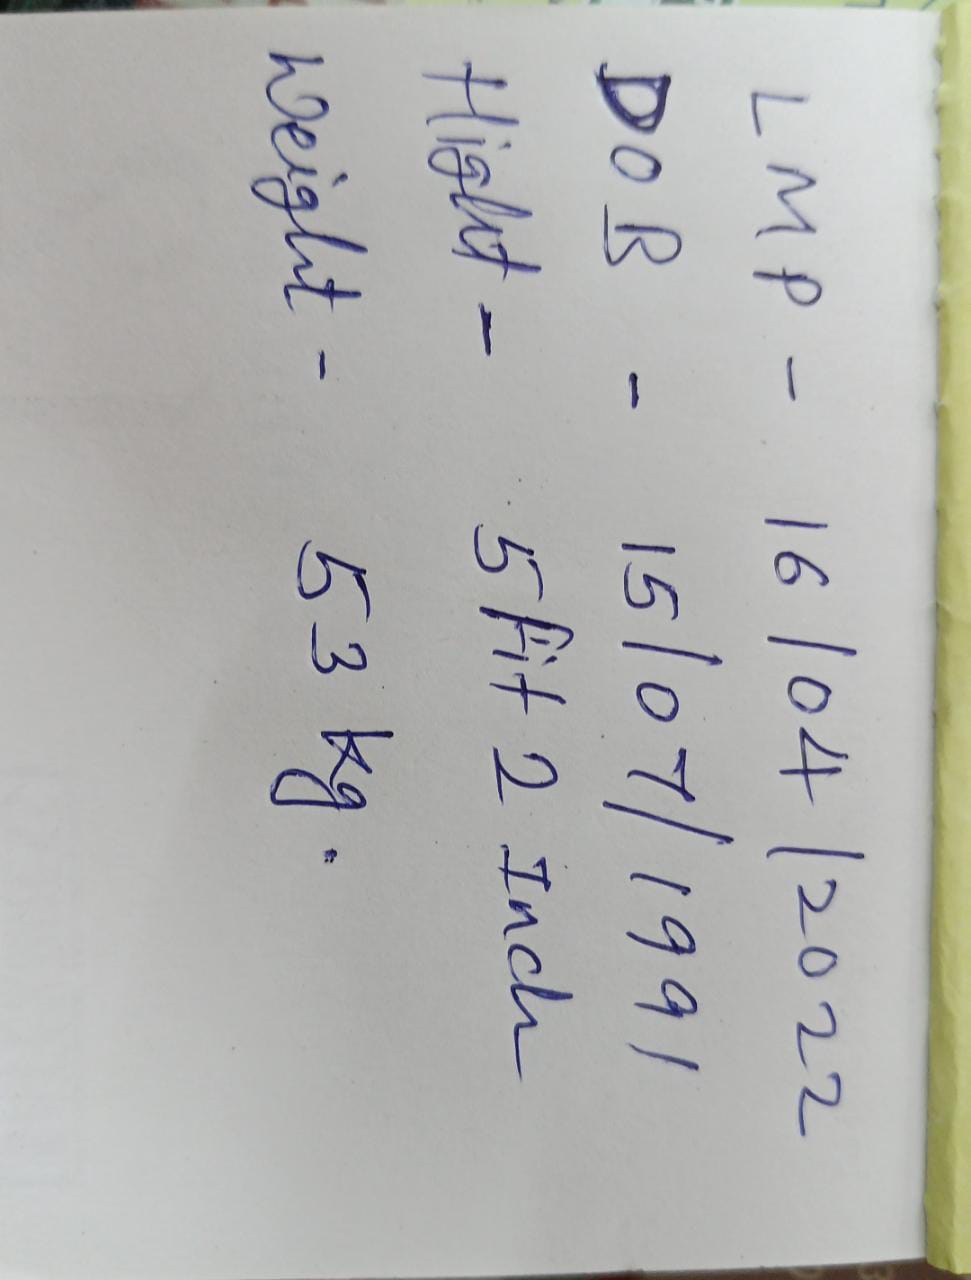 LMP - 16/04/2022
DOB - 15/07/1991
Hight - 5 fit 2 Inch
Weight - 53 kg.